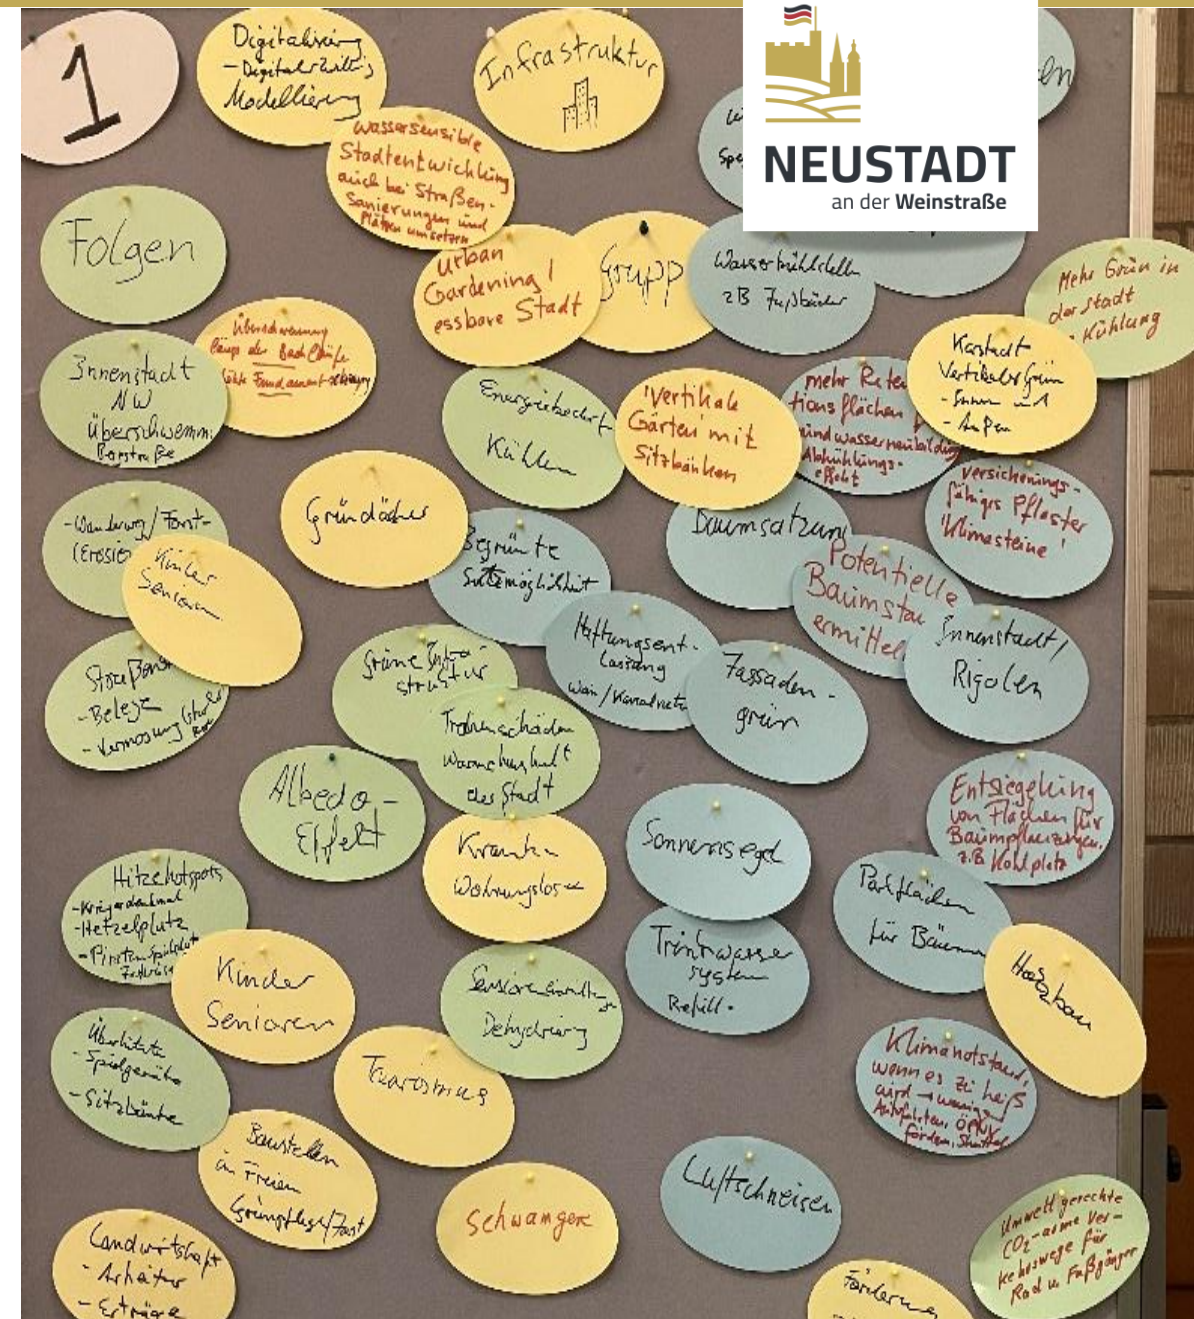 1
Digitalisierung
- Digitaler Zwilling
Modellierung
Infrastruktur
NEUSTADT
an der Weinstraße
en
Spe
wassersensible
Stadtentwicklung
auch bei Straßen-
Sanierungen und
Plätzen umsetzen
Folgen
Urban
Gardening /
essbare Stadt
Grupp
Wasserkühlstellen
zB Fußbäder
Mehr Grün in
der Stadt
Kühlung
Überschwemmung
längs der Bachläufe
Innenstadt
NW
Überschwemm.
Energiebedarf
Kühlen
'Vertikale
Gärten' mit
Sitzbänken
mehr Reten
tionsflächen
Grundwasserneubildung
Abkühlungs-
effekt
Karstadt
Vertikales Grün
- Innen und
- Außen
versickerungs-
fähiges Pflaster
'Klimasteine'
Gründächer
- Wanderweg / Forst-
(Erosion
Kinder
Senioren
Begrünte
Sitzmöglichkeit
Baumsatzung
Potentielle
Baumstan
ermittel
Innenstadt /
Rigolen
Haftungsent-
lassung
Wein / Kanalnetz
Fassaden-
grün
Grüne Infra-
struktur
Straßen
- Beläge
Trockenschäden
der Stadt
Albedo-
Effekt
Kranke
Wohnungslose
Sonnensegel
Entsiegelung
von Flächen für
Baumpflanzungen.
z.B Kohlplatz
Parkflächen
für Bäume
Hitzehotspots
- Kriegerdenkmal
- Hetzelplatz
Kinder
Senioren
Dehydrierung
Trinkwasser
system
Refill.
Holzbau
Überhitzte
- Spielgeräte
- Sitzbänke
Tourismus
Klimanotstand,
wenn es zu heiß
wird → weniger
Autofahrten, ÖPNV
fördern, Shuttle
Baustellen
im Freien
Grünpflege/Forst
Schwangere
Luftschneisen
Umweltgerechte
CO₂-arme Ver-
kehrswege für
Rad u. Fußgänger
Landwirtschaft
- Arbeiter
- Erträge
Förderung